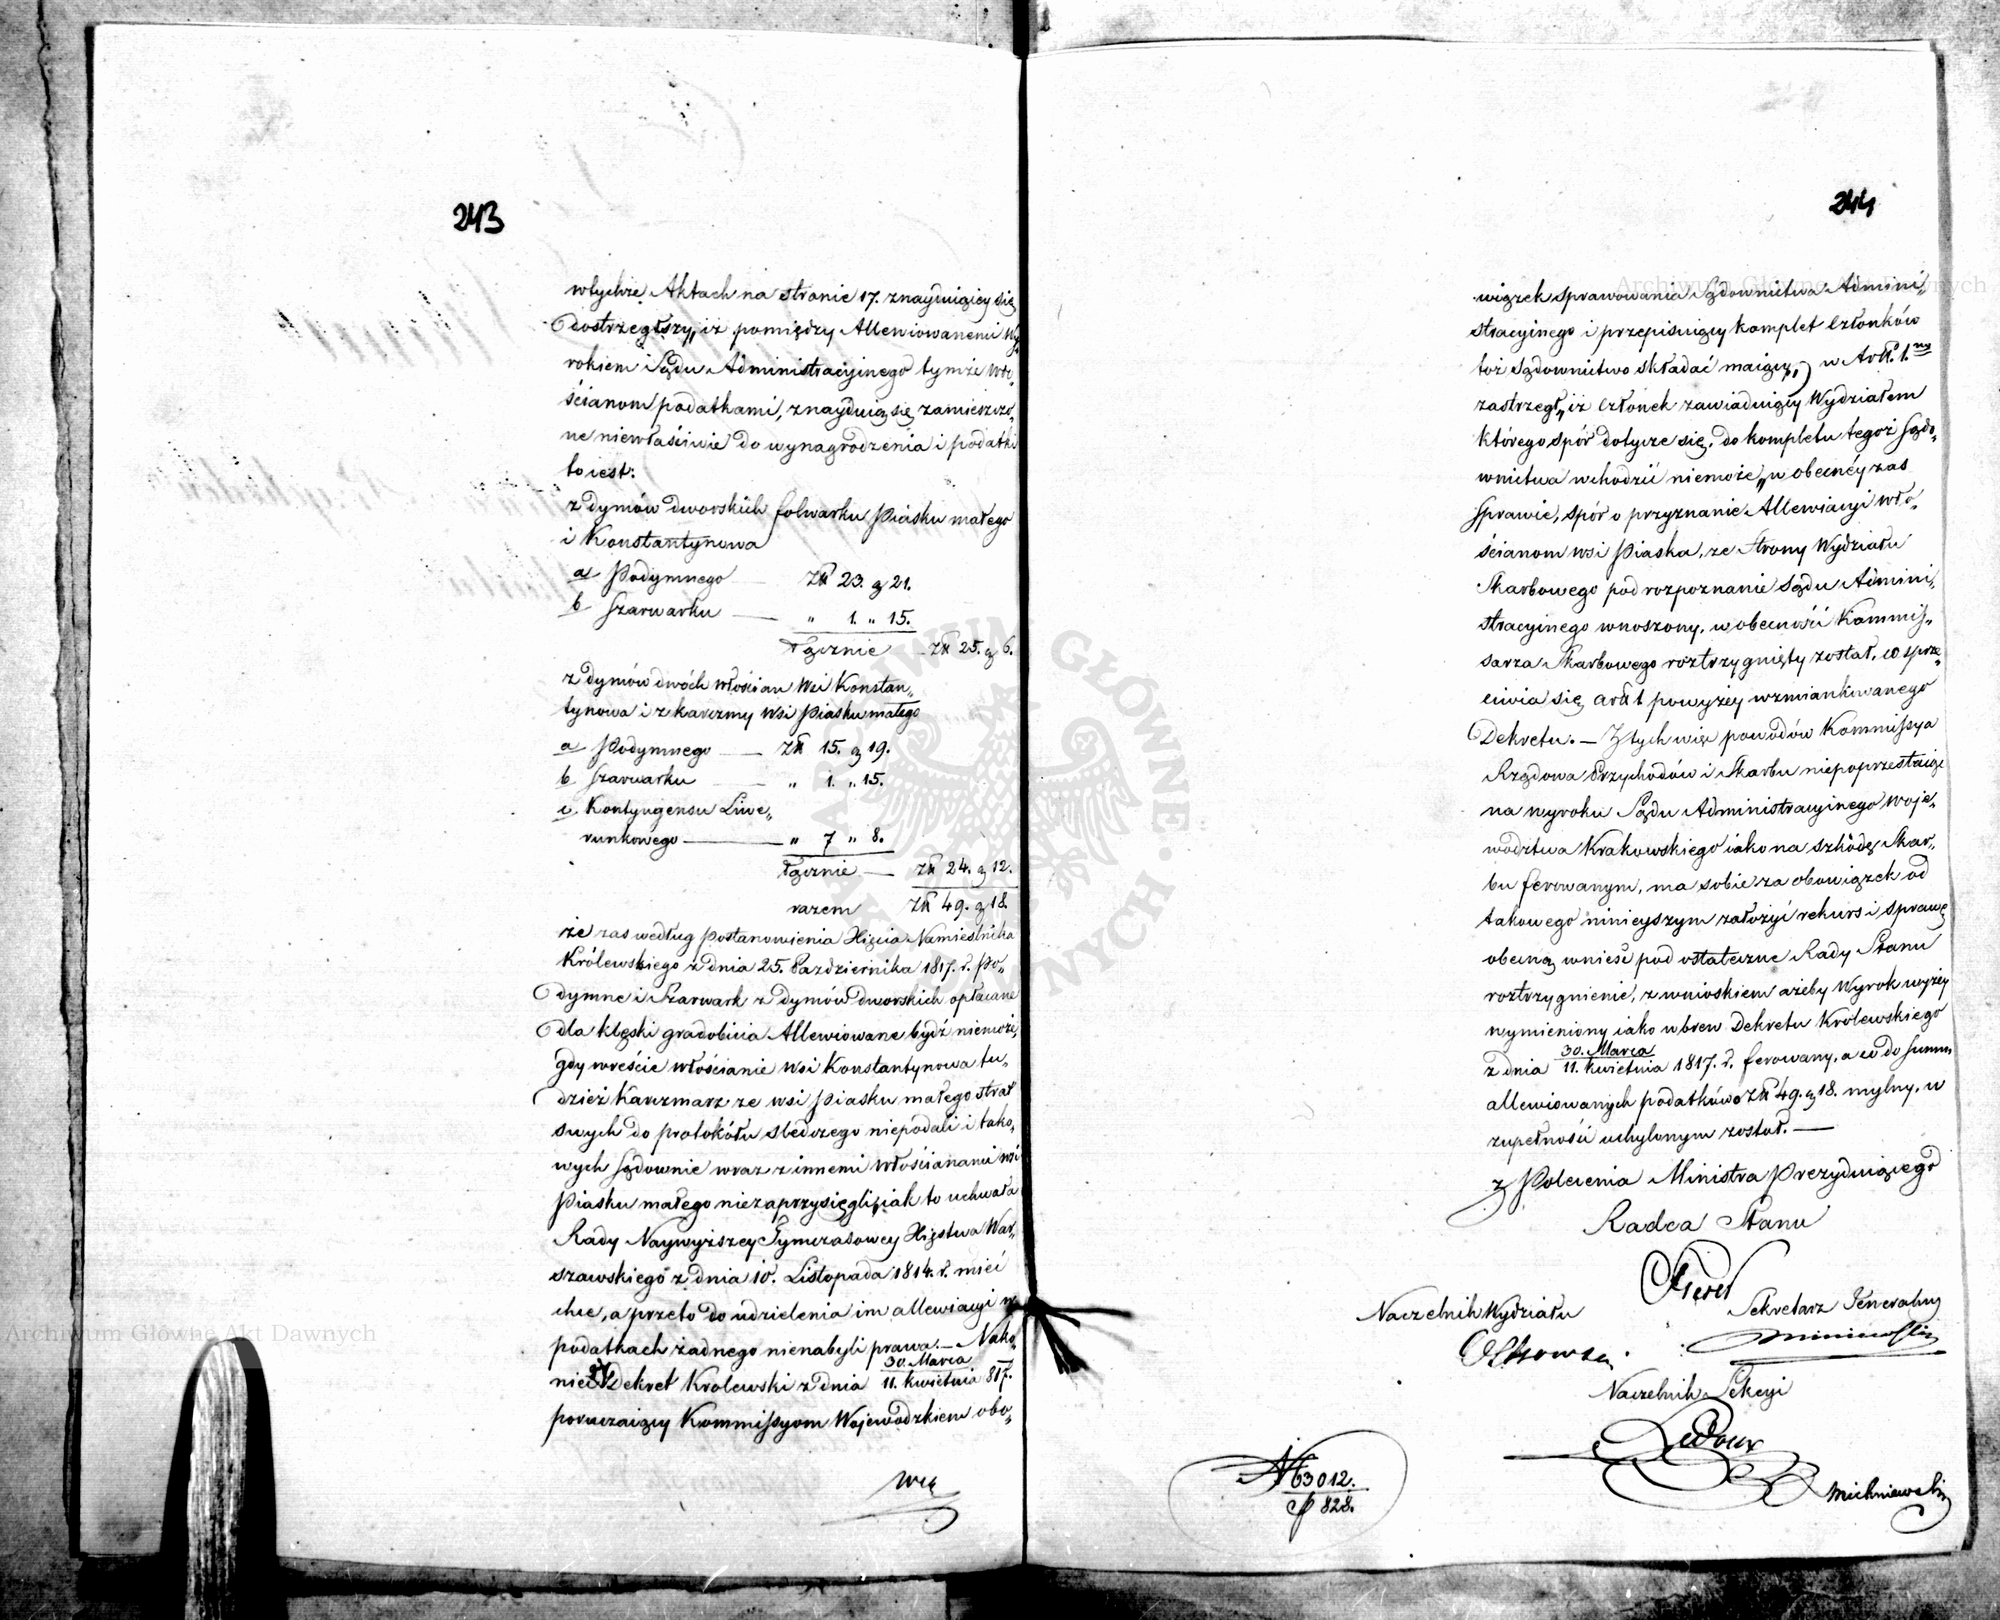 243
wtychże Aktach na stronie 17. znayduiący się
dostrzegłszy, iż pomiędzy Allewiowanemi Wy,,
rokiem Sądu Administracyinego tymże Wło,,
ścianom podatkami, znayduią się zamieszczo,,
ne niewłaściwie do wynagrodzenia i podatki
to iest:
z dymów dworskich folwarku Piasku małego
i Konstantynowa
a Podymnego — Złł 23. g 21.
b Szarwarku — „ 1. „ 15.
Łącznie Złł 25. g 6.
z dymów dwóch włościan Wsi Konstan,,
tynowa i z karczmy Wsi Piasku małego
a Podymnego — Złł 15. g 19.
b Szarwarku — „ 1. „ 15.
c Kontyngensu Liwe,,
runkowego — „ 7 „ 8.
Łącznie — Złł 24. g 12.
razem Złł 49. g 18.
że zas według Postanowienia Xięcia Namiestnika
Królewskiego z dnia 25. Października 1817. r. Po,,
dymne i Szarwark z dymów dworskich opłacane
dla klęski gradobicia Allewiowane bydź niemoże,
gdy wreście włościanie wsi Konstantynowa tu,,
dzież Karczmarz ze wsi Piasku małego strat
swych do protokółu śledczego niepodali i tako,,
wych sądownie wraz z innemi włościanami wsi
Piasku małego niezaprzysięgli, iak to uchwała
Rady Naywyższey Tymczasowey Xięstwa War,,
szawskiego z dnia 10. Listopada 1814. r. mieć
chce, a przeto do udzielenia im allewiacyi w
podatkach żadnego nienabyli prawa. — Nako,,
niec Dekret Krolewski z dnia 30. Marca
11. kwietnia 817.
poruczaiący Kommissyom Wojewodzkiem obo,,
wią
244
wiązek sprawowania Sądownictwa Admini,,
stracyinego i przepisuiący komplet Członków
toż Sądownictwo składać maiący, w Artł. 1.ny
zastrzegł, iż Członek zawiaduiący Wydziałem
którego spór dotycze się, do kompletu tegoż Sądo,,
wnictwa wchodzić niemoże, w obecnéy zas
sprawie, spór o przyznanie Allewiacyi Wło,,
ścianom wsi Piaska, ze strony Wydziału
Skarbowego pod rozpoznanie Sądu Admini,,
stracyinego wnoszony, w obecności Kommis,,
sarza Skarbowego roztrzygnięty został, co sprze,,
ciwia się artł 1 powyżey wzmiankowanego
Dekretu. — Z tych więc powodów Kommissya
Rządowa Przychodów i Skarbu niepoprzestaiąc
na wyroku Sądu Administracyinego Woje,,
wodztwa Krakowskiego iako na szkodę Skar,,
bu ferowanym, ma sobie za obowiązek od
takowego ninieyszym założyć rekurs i sprawę
obecną wnieść pod ostateczne Rady Stanu
roztrzygnienie, z wnioskiem ażeby Wyrok wyżey
wymieniony iako wbrew Dekretu Królewskiego
z dnia 30. Marca
11. kwietnia 1817. r. ferowany, a co do summ
allewiowanych podatków o Złł 49. g 18. mylny, w
zupełności uchylonym został. —
z Polecenia Ministra Prezyduiącego
Radca Stanu
Naczelnik Wydziału
Sekretarz Generalny
Naczelnik Sekcyi
N 63012.
828.
Michniewski
Archiwum Główne Akt Dawnych
Archiwum Główne Akt Dawnych
ARCHIWUM GŁÓWNE AKT DAWNYCH